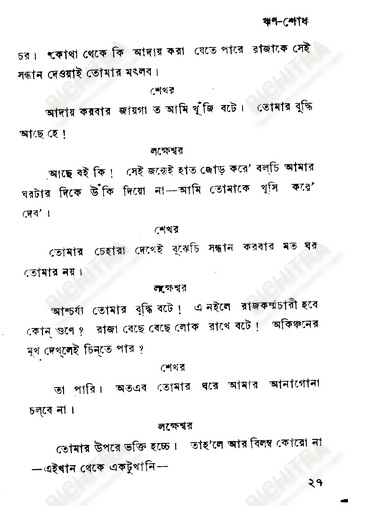 ঋণ-শোধ
চর। কোথা থেকে কি আদায় করা যেতে পারে রাজাকে সেই
সন্ধান দেওয়াই তোমার মৎলব।
শেখর
আদায় করবার জায়গা ত আমি খুঁজি বটে। তোমার বুদ্ধি
আছে হে!
লক্ষেশ্বর
আছে বই কি! সেই জন্যেই হাত জোড় করে' বল্‌চি আমার
ঘরটার দিকে উঁকি দিয়ো না—আমি তোমাকে খুসি করে'
দেব'।
শেখর
তোমার চেহারা দেখেই বুঝেচি সন্ধান করবার মত ঘর
তোমার নয়।
লক্ষেশ্বর
আশ্চর্য্য তোমার বুদ্ধি বটে! এ নইলে রাজকর্ম্মচারী হবে
কোন্ গুণে? রাজা বেছে বেছে লোক রাখে বটে! অকিঞ্চনের
মুখ দেখ্‌লেই চিন্‌তে পার?
শেখর
তা পারি। অতএব তোমার ঘরে আমার আনাগোনা
চল্‌বে না।
লক্ষেশ্বর
তোমার উপরে ভক্তি হচ্চে। তাহ'লে আর বিলম্ব কোরো না
—এইখান থেকে একটুখানি—
২৭
BICHITRA